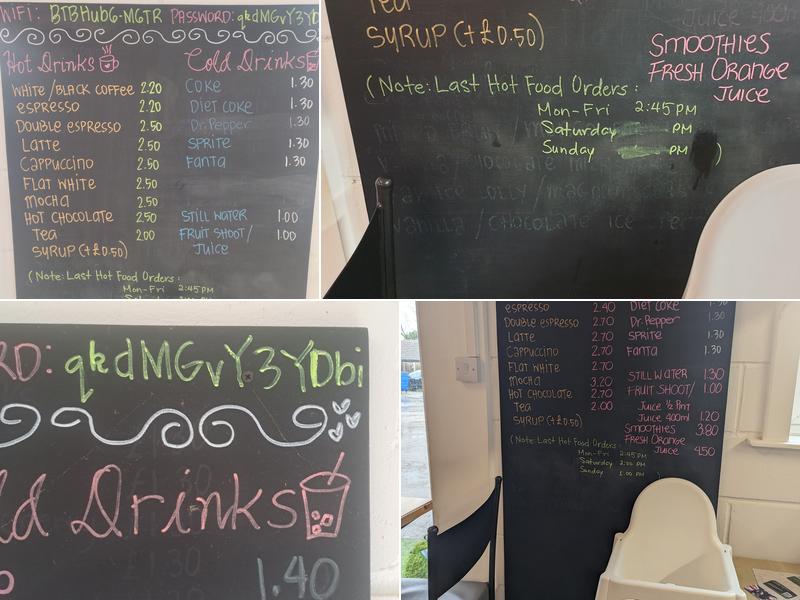 WiFi: BTBHub6-MGTR PASSWORD: qkdMGvY3YD
Hot Drinks
Cold Drinks
WHITE/BLACK COFFEE 2.20
ESPRESSO 2.20
DOUBLE ESPRESSO 2.50
LATTE 2.50
CAPPUCCINO 2.50
FLAT WHITE 2.50
MOCHA 2.50
HOT CHOCOLATE 2.50
TEA 2.00
SYRUP (+£0.50)
COKE 1.30
DIET COKE 1.30
Dr. Pepper 1.30
SPRITE 1.30
FANTA 1.30
STILL WATER 1.00
FRUIT SHOOT/ 1.00
JUICE
(Note: Last Hot Food Orders:
Mon-Fri 2:45PM
Tea
SYRUP (+£0.50)
(Note: Last Hot Food Orders:
Mon-Fri 2:45PM
Saturday PM
Sunday PM )
Juice 400ml
SMOOTHIES
FRESH ORANGE
JUICE
RD: qkdMGvY3YDbi
ld Drinks
1.40
ESPRESSO 2.40
DOUBLE ESPRESSO 2.70
LATTE 2.70
CAPPUCCINO 2.70
FLAT WHITE 2.70
MOCHA 3.20
HOT CHOCOLATE 2.70
TEA 2.00
SYRUP (+£0.50)
DIET COKE 1.30
Dr. Pepper 1.30
SPRITE 1.30
FANTA 1.30
STILL WATER 1.30
FRUIT SHOOT/ 1.00
Juice ½ Pint
Juice 400ml 1.20
SMOOTHIES 3.80
FRESH ORANGE
JUICE 4.50
(Note: Last Hot Food Orders:
Mon-Fri 2:45PM
Saturday 2:00 PM
Sunday 1:00 PM )